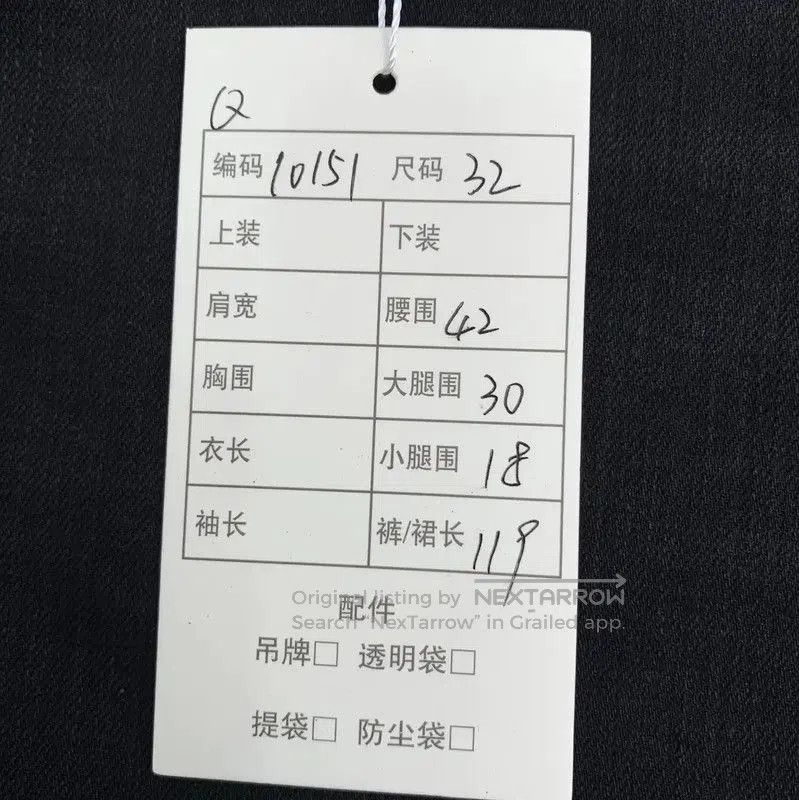 Q
编码 10151 尺码 32
上装 下装
肩宽 腰围 42
胸围 大腿围 30
衣长 小腿围 18
袖长 裤/裙长 119
Original listing by NEXTARROW
配件
Search "NexTarrow" in Grailed app.
吊牌□ 透明袋□
提袋□ 防尘袋□